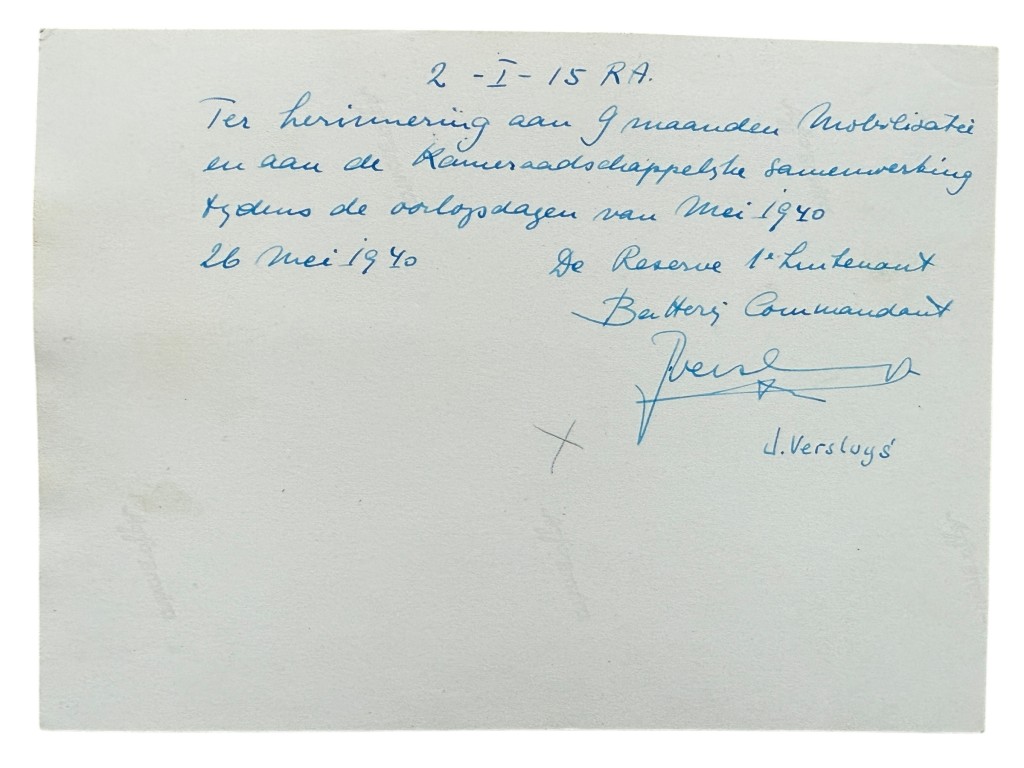 2 - I - 15 R.A.
Ter herinnering aan 9 maanden Mobilisatie
en aan de Kameraadschappelijke samenwerking
tydens de oorlogsdagen van Mei 1940
26 Mei 1940 De Reserve 1e Luitenant
Batterij Commandant
J. Versluys